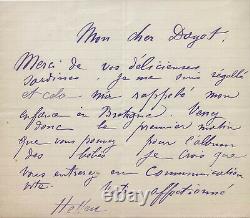 Mon cher Dayot.
Merci de vos délicieuses
sardines. Je me suis régalé
et cela m'a rappelé mon
enfance en Bretagne. Venez
donc le premier matin
que vous pouvez pour l'album
des Je crois que
vous entrerez en communication
vite.
Votre affectionné